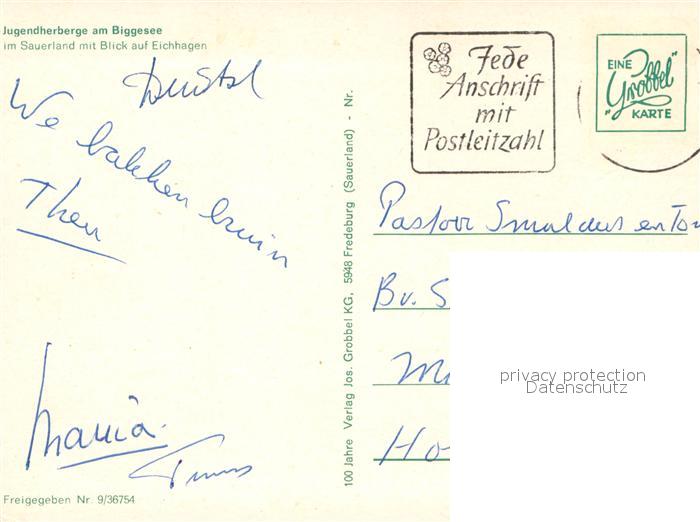 Jugendherberge am Biggesee
im Sauerland mit Blick auf Eichhagen
We bakken bruin
Theo
Maria
Freigegeben Nr. 9/36754
100 Jahre Verlag Jos. Grobbel KG, 5948 Fredeburg (Sauerland) - Nr.
Jede
Anschrift
mit
Postleitzahl
EINE
"Grobbel"
KARTE
Pastoor Smulders en Ton
Bv. S
M
Ho
privacy protection
Datenschutz